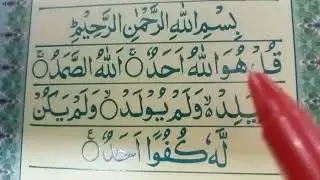 بِسْمِ اللّٰهِ الرَّحْمٰنِ الرَّحِيْمِ
قُلْ هُوَ اللّٰهُ اَحَدٌ ۚ اَللّٰهُ الصَّمَدُ ۚ
يَلِدْ ۙ وَلَمْ يُوْلَدْ ۙ وَلَمْ يَكُنْ
لَّهٗ كُفُوًا اَحَدٌ ۚ